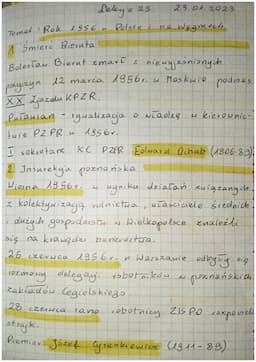 Lekcja 25 23.01.2023
Temat: Rok 1956 w Polsce i na Węgrzech
1 Śmierć Bieruta
Bolesław Bierut zmarł z niewyjaśnionych
przyczyn 12 marca 1956r. w Moskwie podczas
XX Zjazdu KPZR.
Puławianie - rywalizacja o władzę w kierownic-
twie PZPR w 1956r.
I sekretarz KC PZPR Edward Ochab (1906-89).
2 Insurekcja poznańska
Wiosną 1956r. w wyniku działań związanych
z kolektywizacją rolnictwa, właściciele średnich
i dużych gospodarstw w Wielkopolsce znaleźli
się na krawędzi bankructwa.
26 czerwca 1956r. w Warszawie odbyły się
rozmowy delegacji robotników w poznańskich
zakładów Cegielskiego
28 czerwca rano robotnicy ZISPO rozpoczęli
strajk.
Premier Józef Cyrankiewicz (1911-89)